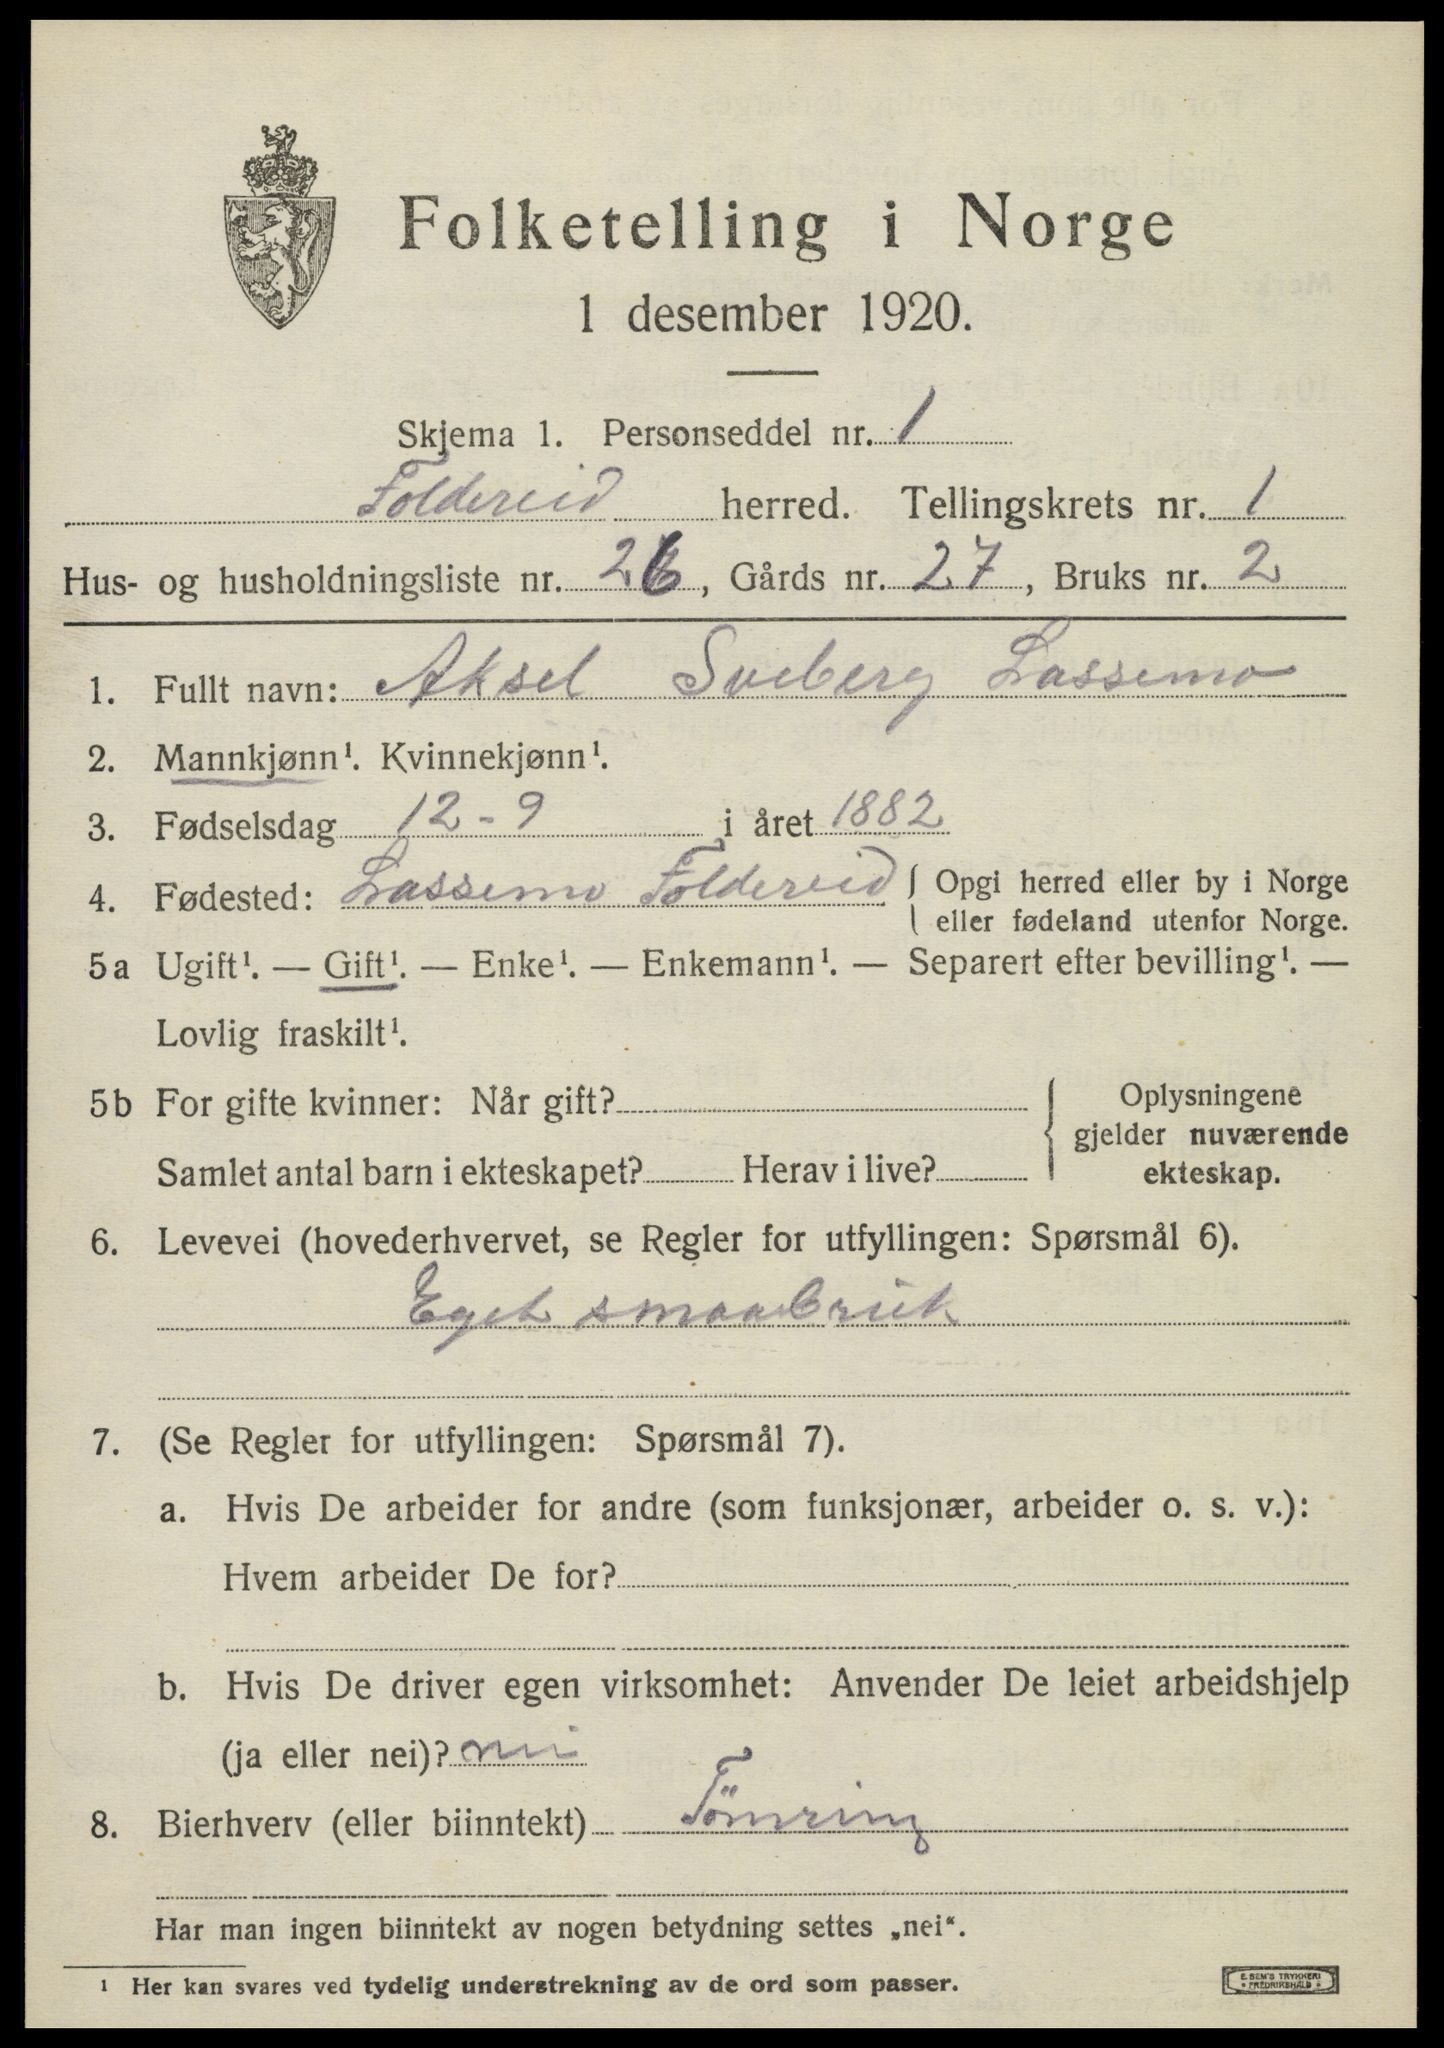 Folketelling i Norge
1 desember 1920.
Skjema 1. Personseddel nr. 1
Foldereid herred. Tellingskrets nr. 1
Hus- og husholdningsliste nr. 26, Gårds nr. 27, Bruks nr. 2
1. Fullt navn: Aksel Sveberg Lassemo
2. Mannkjønn¹. Kvinnekjønn¹.
3. Fødselsdag 12-9 i året 1882
4. Fødested: Lassemo Foldereid { Opgi herred eller by i Norge
eller fødeland utenfor Norge.
5a Ugift¹. — Gift¹. — Enke¹. — Enkemann¹. — Separert efter bevilling¹. —
Lovlig fraskilt¹.
5b For gifte kvinner: Når gift? { Oplysningene
gjelder nuværende
Samlet antal barn i ekteskapet? Herav i live? ekteskap.
6. Levevei (hovederhvervet, se Regler for utfyllingen: Spørsmål 6).
Eget smaabruk
7. (Se Regler for utfyllingen: Spørsmål 7).
a. Hvis De arbeider for andre (som funksjonær, arbeider o. s. v.):
Hvem arbeider De for?
b. Hvis De driver egen virksomhet: Anvender De leiet arbeidshjelp
(ja eller nei)? nei
8. Bierhverv (eller biinntekt) Tömring
Har man ingen biinntekt av nogen betydning settes „nei“.
¹ Her kan svares ved tydelig understrekning av de ord som passer.
E. SEM'S TRYKKERI
FREDRIKSHALD